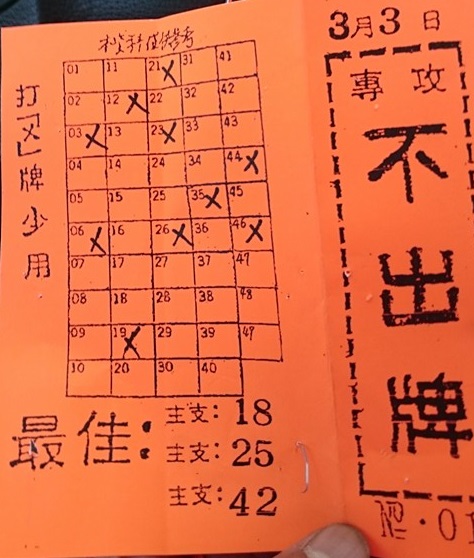 3月3日
專攻
不出牌
打「X」牌少用
01 11 21 31 41
02 12 22 32 42
03 13 23 33 43
04 14 24 34 44
05 15 25 35 45
06 16 26 36 46
07 17 27 37 47
08 18 28 38 48
09 19 29 39 49
10 20 30 40
最佳:
主支:18
主支:25
主支:42